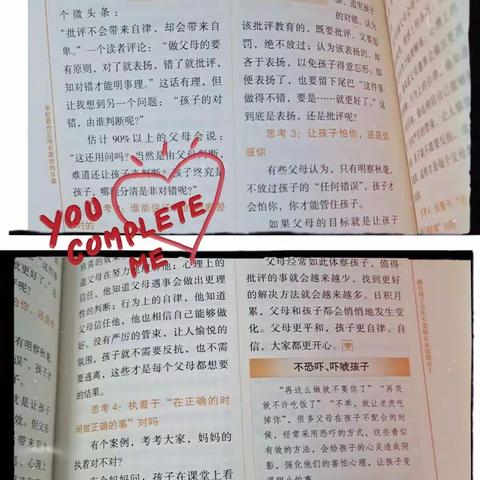 个微头条：
“批评不会带来自律，却会带来自
卑。”一个读者评论：“做父母的要
有原则，对了就表扬，错了就批评，
知对错才能明事理。”这话有理，但
让我想到另一个问题：“孩子的对
错，由谁判断呢？”
估计90%以上的父母会说：
“这还用问吗？当然是由父母判断，
难道还让孩子来判断？孩子终究是
孩子，哪能分清是非对错呢？”
的对错。认为
该批评教育的，既要批评，又要惩
罚，绝不放过；认为该表扬的，却
吝于表扬，以免孩子得意忘形；即
便表扬了，也要留下尾巴“这件事
做得不错，要是……就更好了。”这
到底是表扬，还是批评呢？
思考3：让孩子怕你，还是信
服你
有些父母认为，只有明察秋毫，
不放过孩子的“任何错误”，孩子才
会怕你，你才能管住孩子。
如果父母的目标就是让孩子
YOU
COMPLETE
ME
信任，他知道父母遇事会做出更理
性的判断；行为上的自律，他知道
父母信任他，他也相信自己能够做
好。没有严厉的管束，让人愉悦的
氛围，孩子就不需要反抗，也不需
要逃离，这些才是每个父母都想要
的结果。
思考4：执着于“在正确的时
间做正确的事”对吗
有个案例，考考大家，妈妈的
执着对不对？
有个妈妈问，孩子在课堂上看
父母经常如此体察孩子，值得
批评的事就会越来越少，找到更好
的解决方法就会越来越多。日积月
累，父母和孩子都会悄悄地发生变
化。父母更平和，孩子更自律、自
信，大家都更开心。
不恐吓、吓唬孩子
“再这么做就不要你了”“再哭
就不许吃饭了”“不乖，就让老虎吃
掉你”，很多父母在孩子不配合的时
候，经常采用恐吓的方式，这些看似
有效的方法，会给孩子的心灵造成阴
影，强化他们的害怕心理，让孩子变